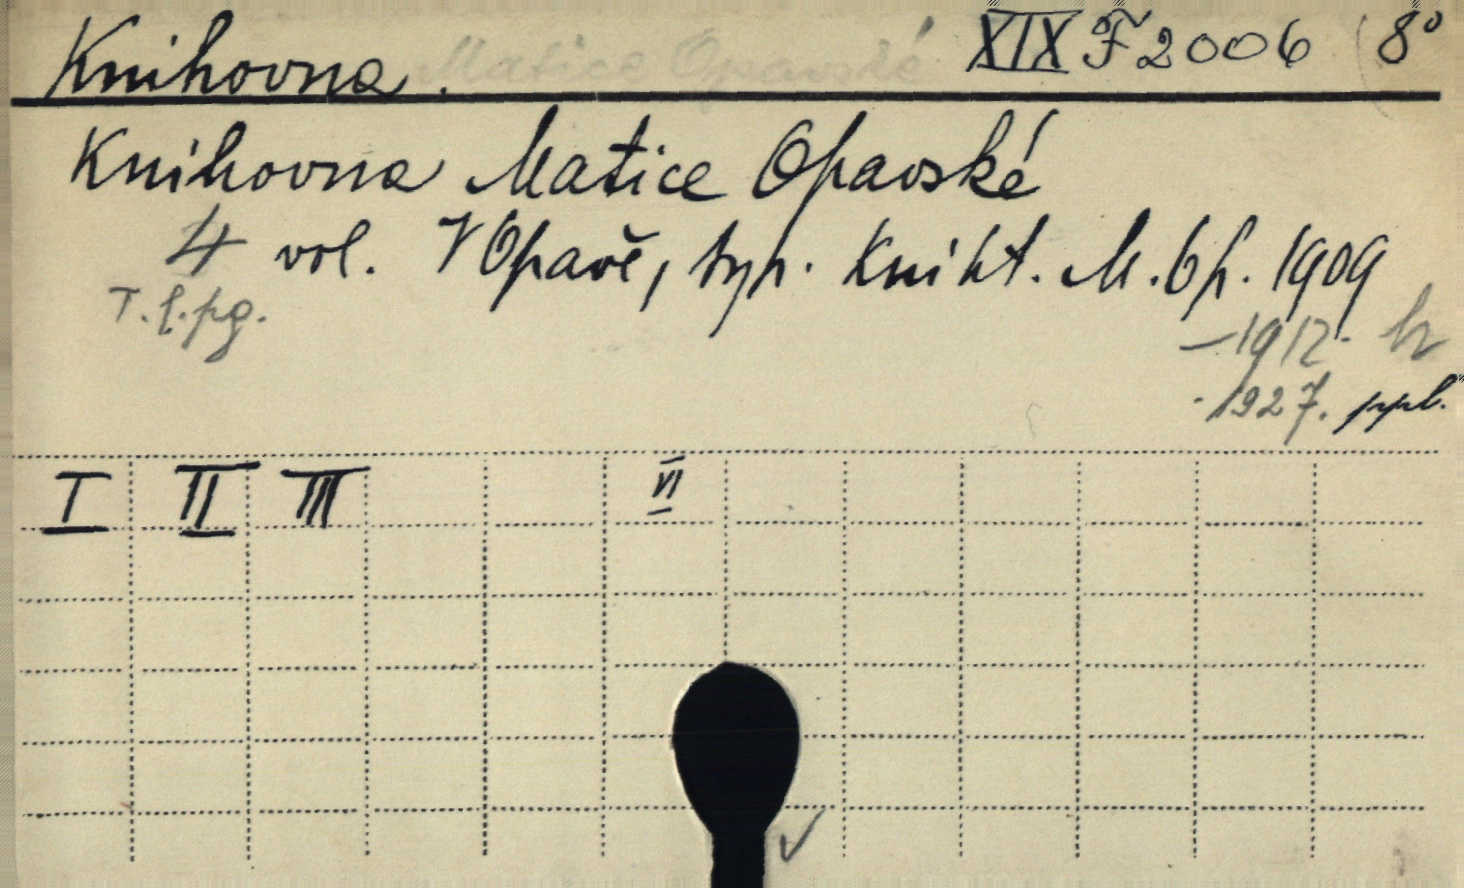 Knihovna. Matice Opavské XIX F 2006 8°
Knihovna Matice Opavské
4 vol. V Opavě, typ. Kniht. M. Op. 1909
T. l. pg.
-1912.
-1927.
I II III VI